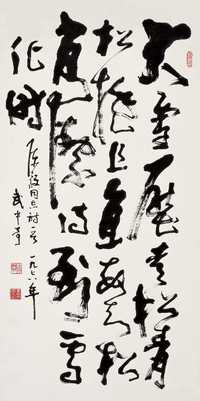 大雪壓青松青
松挺且直要知松
高潔待到雪
化時
陈毅同志詩一首 一九七八年
武中奇